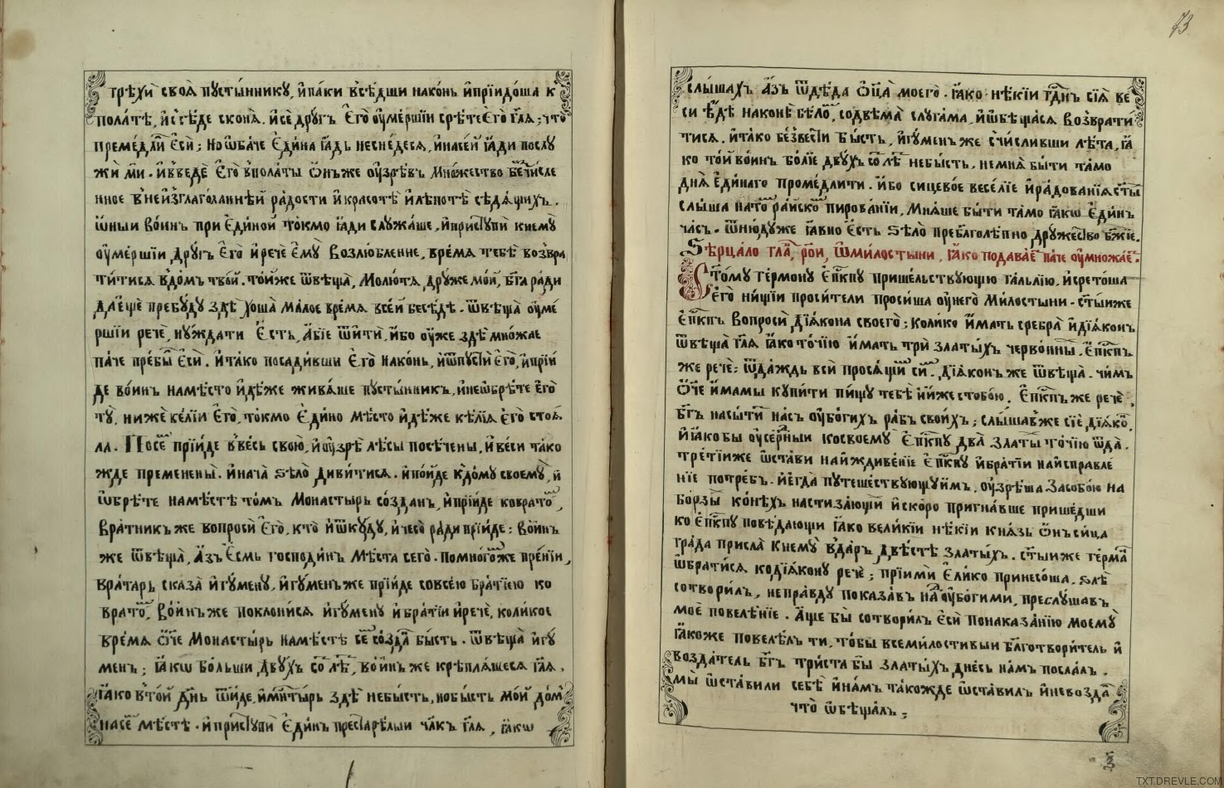 грѣхи своѧ пꙋстыннику, и҆ паки всѣдши на конь и҆ прїидоша к
полатѣ, и҆ ссѣде с конѧ. и҆ се дрꙋгъ е҆го ᲂу҆мершїи срѣте е҆го гл҃ѧ; что
премедлил е҆си; но ѡ҆баче е҆дина ꙗ҆дь не снедесѧ, и҆ на сей ꙗ҆ди послꙋ
жи ми. и҆ введе е҆го в полаты ѻ҆нъ же ᲂу҆зрѣвъ множество безчисле
нное в неизглаголаннѣй радости и҆ красотѣ и҆ лѣпотѣ сѣдѧщихъ.
ѡ҆ный во́инъ при е҆диной токмо ꙗ҆ди слꙋжаше, и҆ пристꙋпи к немꙋ
ᲂу҆мершїи дрꙋгъ е҆го и҆ рече е҆мꙋ возлюбленне, время тебѣ возвра
титисѧ в домъ твой. той же ѿвѣща, молютѧ дрꙋже мой, бг҃а ради
да е҆ще пребꙋдꙋ здѣ хоша малое время в сей бесѣдѣ. ѿвѣща ᲂу҆ме
ршїи рече, нꙋждати е҆сть, а҆бїе ѿити, и҆бо ᲂу҆же здѣ множае
паче пребы е҆си. и҆ тако посадивши е҆го на конь, и҆ ѿпꙋсти е҆го, и҆ прїи
де во́инъ на мѣсто идѣже живѧше пꙋстынникъ, и҆ не ѡ҆брѣте е҆го
тꙋ, ниже келїи е҆го, токмо е҆дино мѣсто и҆дѣже келїѧ е҆го стоѧ
ла. По семъ прїиде в весь свою, и҆ ᲂу҆зрѣ лѣсы посѣчены, и҆ веси тако
жде пременены. и҆ нача ѕѣло дивитисѧ. и҆ пойде к домꙋ своемꙋ, и҆
ѡ҆брѣте на мѣстѣ томъ монастырь созданъ, и҆ прїиде ко вратомъ,
вратникъ же вопроси е҆го, кто и҆ ѿкꙋдꙋ, и҆ чесо ради прїиде; во́инъ
же ѿвѣща, а҆зъ е҆смь господинъ мѣста сего. по многом же прѣнїи,
вратарь сказа и҆гꙋменꙋ, и҆гꙋменъ же прїиде со всею братїею ко
вратомъ, во́инъ же поклонисѧ и҆гꙋменꙋ и҆ братїи и҆ рече, коликое
время ѻ҆тче монастырь на мѣстѣ се созданъ бысть. ѿвѣща и҆гꙋ
менъ; ꙗ҆кѡ больши двꙋхъ со лѣтъ, во́инъ же крѣплѧшесѧ гл҃ѧ,
ꙗ҆ко в той д҃нь ѿиде, и҆ мнтырь здѣ не бысть, но бысть мой дом
на семъ мѣстѣ. и҆ пристꙋпи е҆динъ престарѣлыи чл҃къ гл҃ѧ, ꙗ҆кѡ
73
слышахъ а҆зъ ѿ дѣда ѻ҆ц҃а моего. ꙗ҆ко нѣкїи гд҃нъ сїѧ ве
си ѣде на коне бѣломъ, со двѣма слꙋгама, и҆ ѡ҆бѣщасѧ возврати
тисѧ. и҆ тако безвестїи бысть, и҆гꙋмен же счисливши лѣта, ꙗ҆
ко той во́инъ болїе двꙋхъ со лѣтъ не бысть. не мнѧ быти тамо
дн҃ѧ е҆динаго промедлити. и҆бо сицевое веселїе и҆ радованїѧ ст҃ы
слыша на томъ райском пированїи, мнѧше быти тамо ꙗ҆кѡ е҆динъ
часъ. ѿнюдꙋже ꙗ҆вно е҆сть ѕѣло преблаголѣпно дрꙋжество бж҃їе.
Зѣрцало глава, рои, ѡ҆ милостыни, ꙗ҆ко подаваемъ паче ᲂу҆множаетъ.
Ст҃омꙋ германꙋ е҆пк҃пꙋ пришельствꙋющꙋ галлїю, и҆ сретоша
е҆го нищїи просители просиша ᲂу҆ него милостыни. ст҃ый же
е҆пк҃пъ вопроси дїакона своего; колико и҆мать сребра и҆ дїаконъ
ѿвѣща гл҃ѧ ꙗ҆ко точїю и҆мать три златыхъ червонны. е҆пк҃пъ
же рече; ѿдаждь всѧ просѧщїм симъ. дїакон же ѿвѣща. чимъ
ѻ҆тче и҆мамы кꙋпити пищꙋ тебѣ и҆ иже с тобою. е҆пк҃пъ же рече,
бг҃ъ насытитъ насъ ᲂу҆богихъ рабъ своихъ; слышав же сїе дїаконъ
и҆ ꙗ҆ко бы ᲂу҆серный ко своемꙋ е҆пк҃пꙋ два златы точїю ѿда.
третїи же ѡ҆стави на и҆ждивенїе е҆пк҃пꙋ и҆ братїи на и҆справле
нїе потребъ. и҆ е҆гда пꙋтешествꙋющꙋ и҆мъ, ᲂу҆зрѣша за собою на
борзы конехъ настизающїй и҆ скоро пригнавше пришедши
ко е҆пк҃пꙋ повѣдающи ꙗ҆ко великїи нѣкїи князь ѻ҆нъсица
града присла к немꙋ в даръ двѣстѣ златыхъ. ст҃ый же герман
ѡ҆братисѧ ко дїаконꙋ рече; прїими е҆лико принесоша. ѕлѣ
сотворилъ, неправдꙋ показавъ над ᲂу҆богими, преслꙋшавъ
мое повелѣнїе. А҆ще бы сотворилъ е҆си по наказанїю моемꙋ
ꙗ҆коже повелѣлъ ти, то бы всемилостивыи бл҃готворитель и҆
воздатель бг҃ъ триста бы златыхъ днесь намъ послалъ.
мы ѡ҆ставили себѣ и҆ намъ такожде ѡ҆ставилъ и҆ не возда
что ѡ҆бѣщалъ.;
TXT.DREVLE.COM